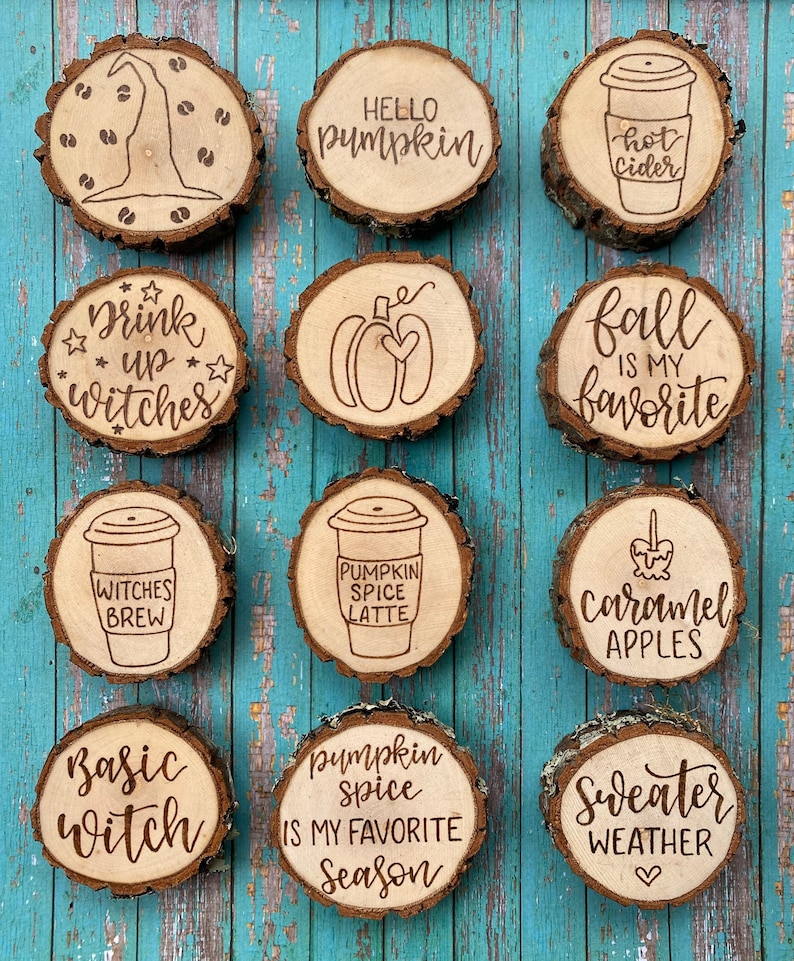 HELLO
pumpkin
hot
cider
Drink
up
witches
fall
IS MY
favorite
WITCHES
BREW
PUMPKIN
SPICE
LATTE
caramel
APPLES
Basic
witch
pumpkin
spice
IS MY FAVORITE
season
sweater
WEATHER